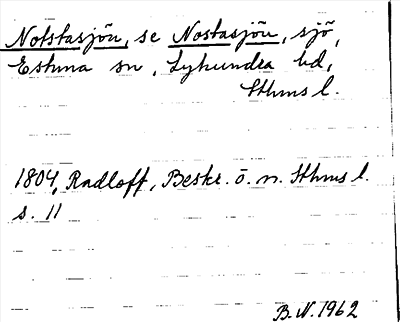 Notstasjön, se Nostasjön, sjö,
Estuna sn, Lyhundra hd,
Sthms l.
1804, Radloff, Beskr. ö. n. Sthms l.
s. 11
B.N. 1962